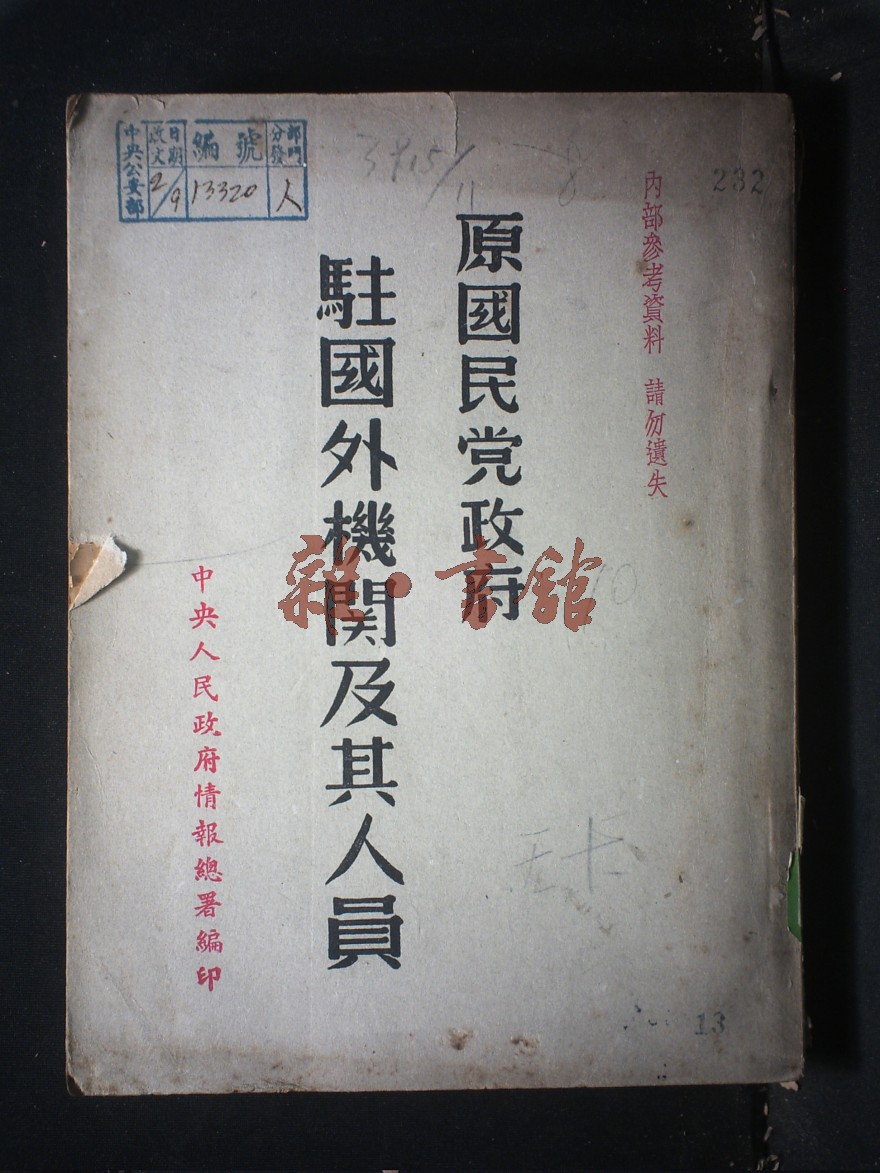 內部參考資料 請勿遺失
原國民党政府
駐國外機関及其人員
中央人民政府情報總署編印
部門分發
人
編號
13320
日期 收文
2/9
中央公安部
232
3915/11
13
雜·書館